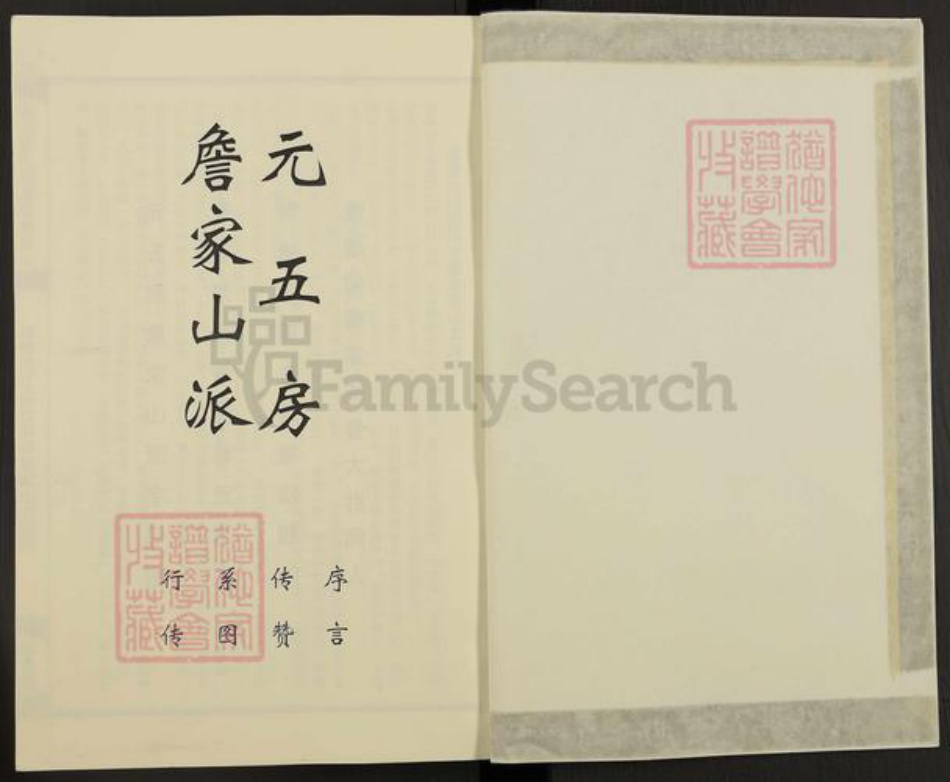 元五房
詹家山派
序言
传赞
系图
行传
猶他家
譜學會
收藏
猶他家
譜學會
收藏
FamilySearch